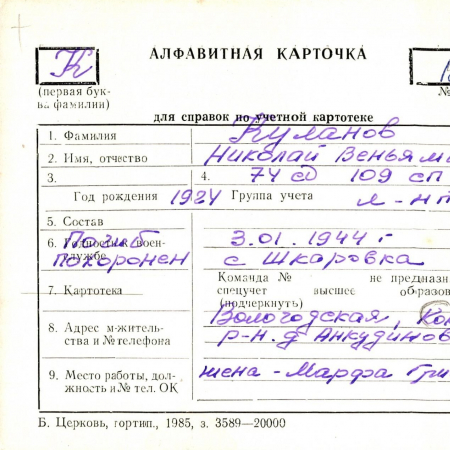 К
АЛФАВИТНАЯ КАРТОЧКА
(первая бук-
ва фамилии)
№
для справок по учетной картотеке
1. Фамилия Куланов
2. Имя, отчество Николай Веньями
3. 4. 74 сд 109 сп
Год рождения 1924 Группа учета л-нт
5. Состав
6. Годность к воен- Погиб 3.01.1944 г
службе похоронен с Шкаровка
Команда № не предназн
7. Картотека спецучет высшее образов
(подчеркнуть)
Вологодская,
8. Адрес м-житель- р-н. д Анкудинов
ства и № телефона
9. Место работы, дол- жена - Марфа Гри
жность и № тел. ОК
Б. Церковь, гортип., 1985, з. 3589—20000